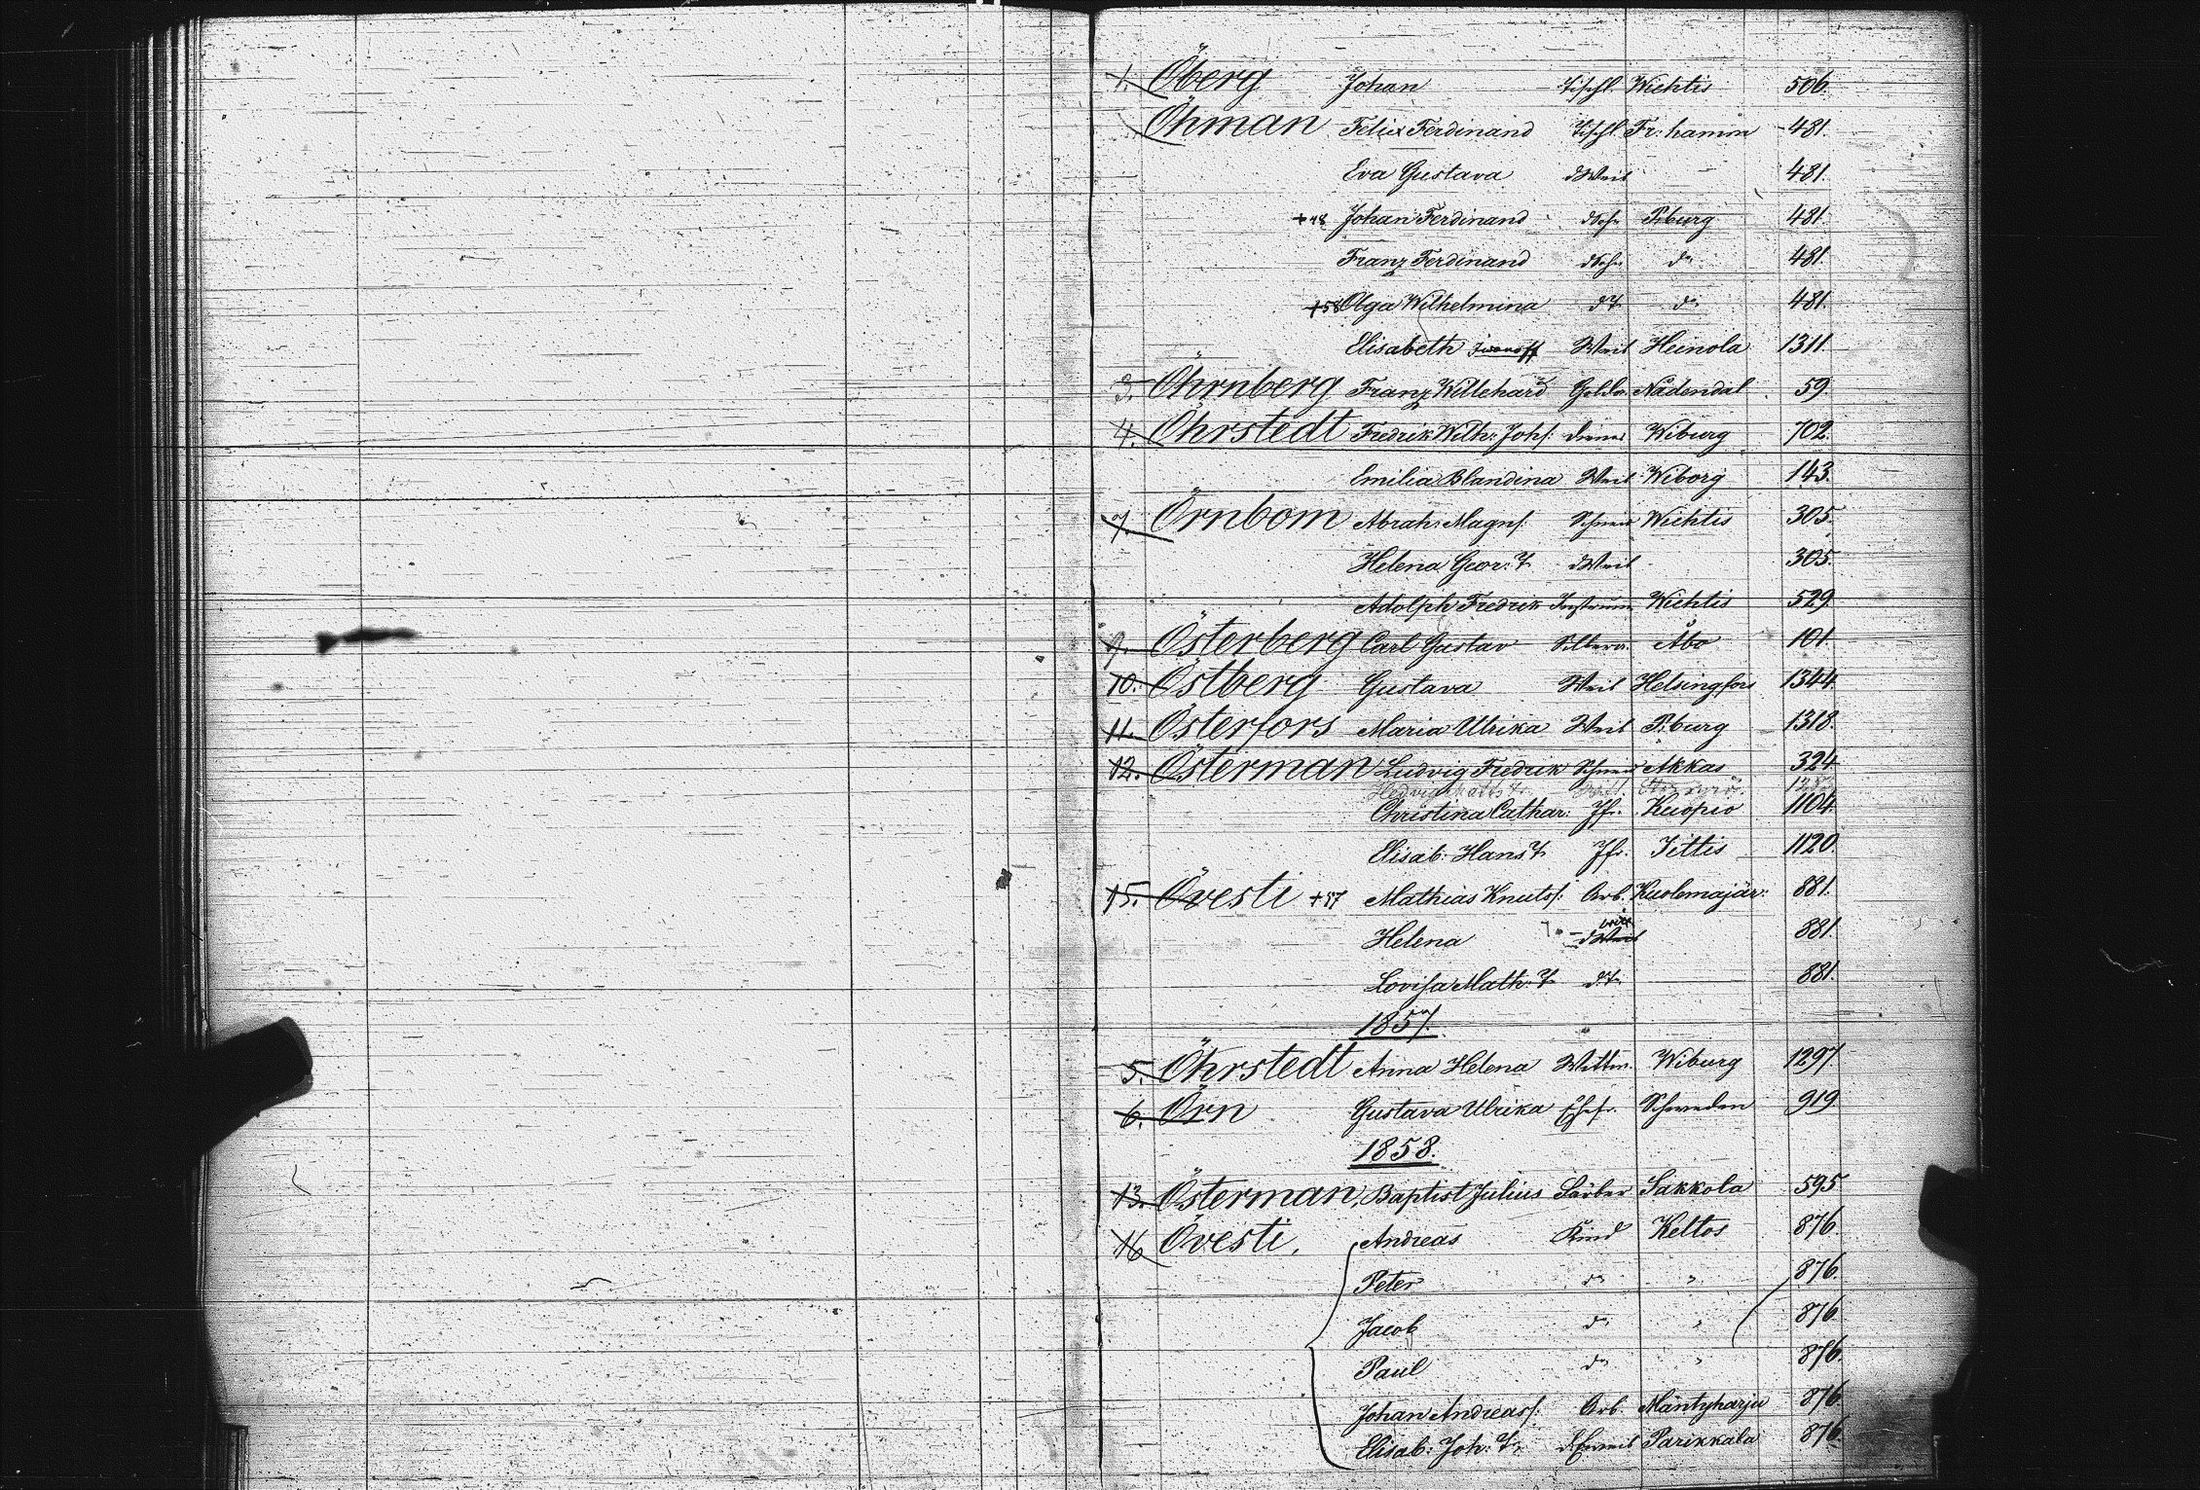 1. Öberg Johan Tischl. Wichtis 506.
Öhman Felix Ferdinand Tischl. Fr: hamm 481.
Eva Gustava dWeib 481.
+48 Johan Ferdinand dSohn P.burg 481.
Franz Ferdinand dSohn do 481.
+58 Olga Wilhelmina dT do 481.
Elisabeth Iwanoff Weib Heinola 1311.
3. Öhrnberg Franz Willehard Golda. Nådendal 59.
4. Öhrstedt Fredrik Wilh: Johs: Diener Wiburg 702.
Emilia Blandina Weib Wiborg 143.
7. Örnbom Abrah: Magns: Schneid Wichtis 305.
Helena Geor: T. dWeib 305.
Adolph Fredrik Instrum Wichtis 529.
9. Österberg Carl Gustav Silbera. Åbo 101.
10. Östberg Gustava Weib Helsingfors 1344.
11. Österfors Maria Ulrika Weib P.burg 1318.
12. Österman Ludvig Fredrik Schneid Akkas 324.
Hedvig Matts T.
Christina Cathar: Jfr. Kuopio 1104.
Elisab: Hans T. Jfr. Iittis 1120.
15. Övesti +57 Mathias Knuts: Arb. Kuolemajär: 881.
Helena dWeib 881.
Lovisa Math: T. d.T. 881.
1857.
5. Öhrstedt Anna Helena Wittw. Wiburg 1297.
6. Örn Gustava Ulrika Ehefr. Schweden 919.
1858.
13. Österman, Baptist Julius Färber Sakkola 595.
16 Övesti, Andreas Kind Keltos 876.
Peter do " 876.
Jacob do " 876.
Paul do " 876.
Johan Andreass: Arb. Mäntyharju 876.
Elisab: Joh: T. Parikkala 876.